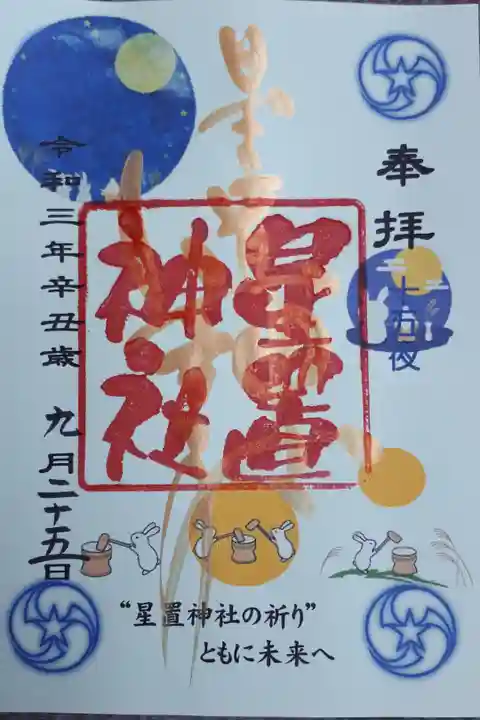 奉拝
十五夜
星置
神社
星置神社
令和三年辛丑歳 九月二十五日
“星置神社の祈り”
ともに未来へ